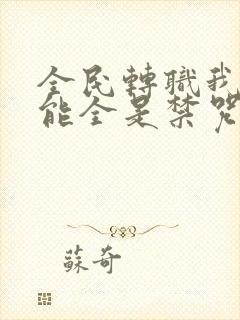 全民轉職我
能全是禁咒
蘇奇